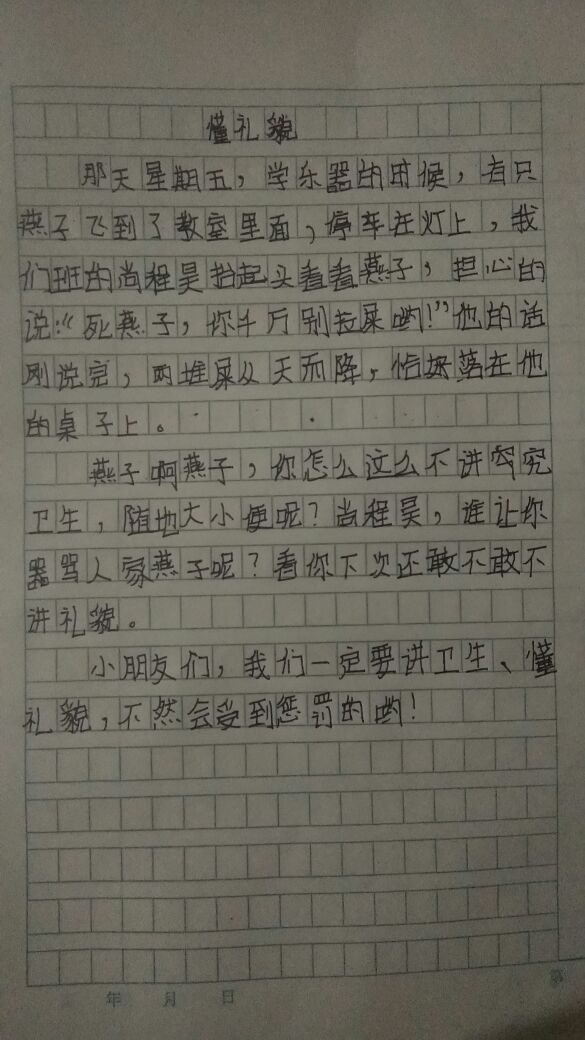 懂礼貌
那天星期五，学乐器的时候，有只
燕子飞到了教室里面，停车在灯上，我
们班的尚程昊抬起头看看燕子，担心的
说：“死燕子，你千万别拉屎哟！”他的话
刚说完，两堆屎从天而降，恰好落在他
的桌子上。
燕子啊燕子，你怎么这么不讲究
卫生，随地大小便呢？尚程昊，谁让你
骂人家燕子呢？看你下次还敢不敢不
讲礼貌。
小朋友们，我们一定要讲卫生、懂
礼貌，不然会受到惩罚的哟！
年 月 日
第